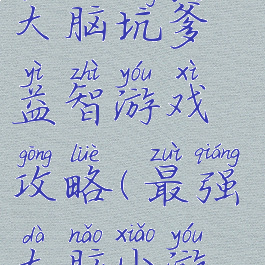 大脑坑爹
yì zhì yóu xì
益智游戏
gōng lüè zuì qiáng
攻略(最强
dà nǎo xiǎo yóu
大脑小游